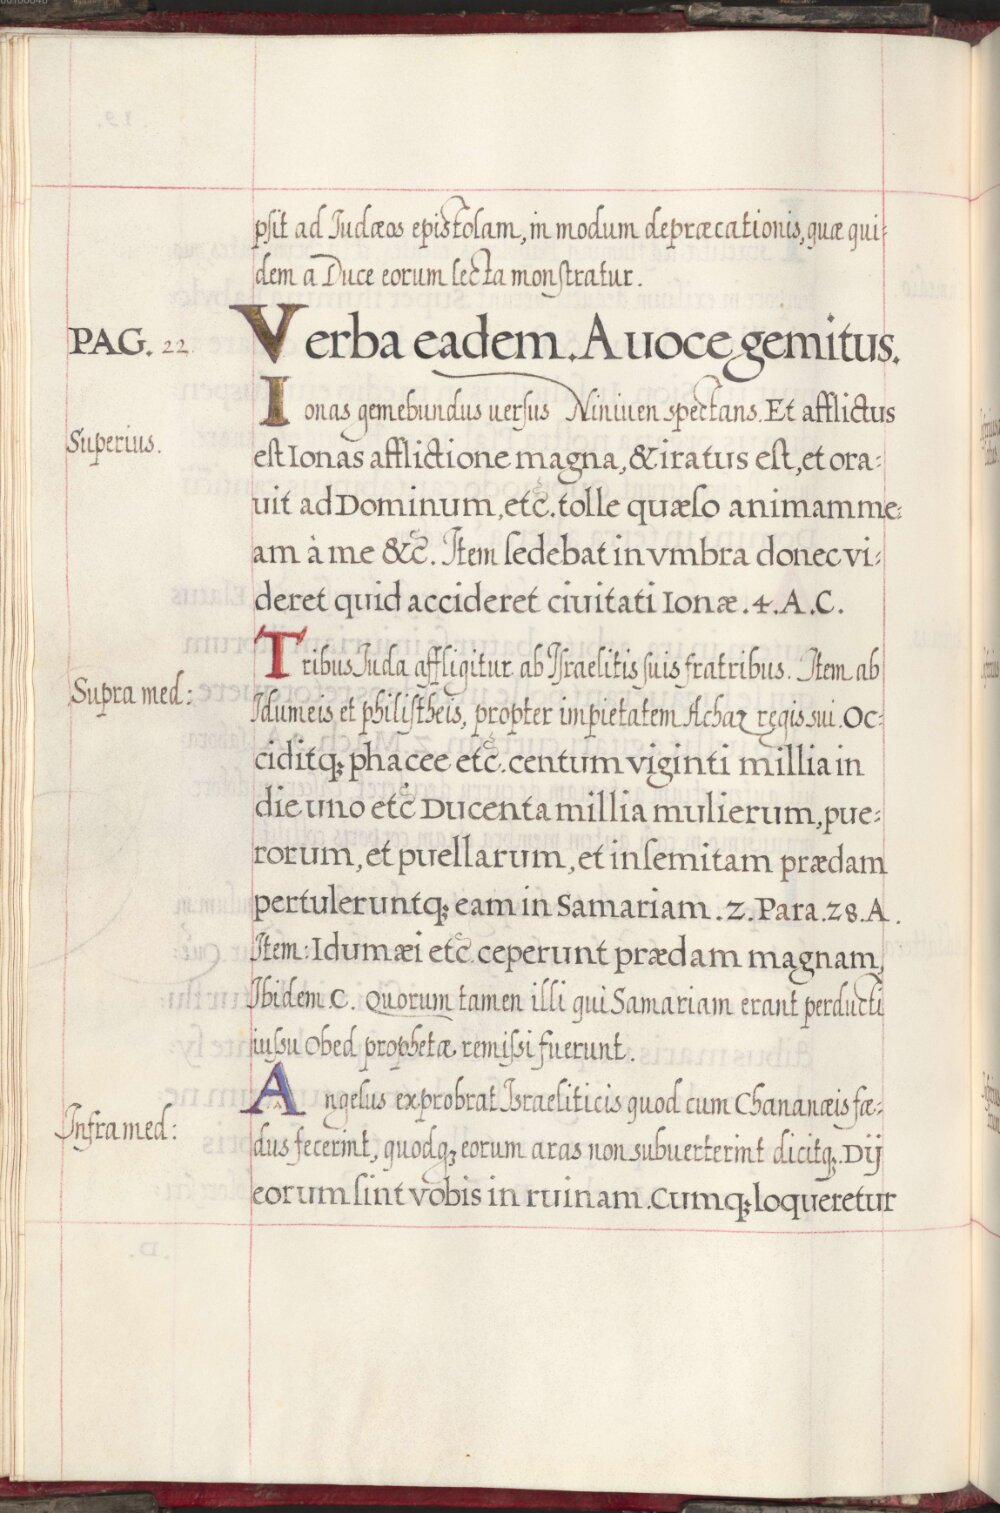 psit ad Iudæos epistolam, in modum depræcationis, quæ qui-
dem a Duce eorum lecta monstratur.
PAG. 22
Verba eadem. A uoce gemitus.
Superius.
Ionas gemebundus uersus Niniuen spectans. Et afflictus
est Ionas afflictione magna, & iratus est, et ora-
uit ad Dominum, etc̃. tolle quæso animam me-
am à me &c̃. Item sedebat in vmbra donec vi-
deret quid accideret ciuitati Ionæ. 4. A. C.
Supra med:
Tribus Iuda affligitur ab Israelitis suis fratribus. Item ab
Idumeis et philistheis, propter impietatem Achaz regis sui. Oc-
ciditq; phacee etc̃. centum viginti millia in
die uno etc̃ Ducenta millia mulierum, pue-
rorum, et puellarum, et in semitam prædam
pertuleruntq; eam in Samariam. 2. Para. 28. A.
Item: Idumæi etc̃ ceperunt prædam magnam,
Ibidem C. Quorum tamen illi qui Samariam erant perducti
iussu Obed prophetæ remissi fuerunt.
Infra med:
Angelus exprobrat Israeliticis quod cum Chananæis fæ-
dus fecerint, quodq; eorum aras non subuerterint dicitq;. Dij
eorum sint vobis in ruinam. Cumq; loqueretur